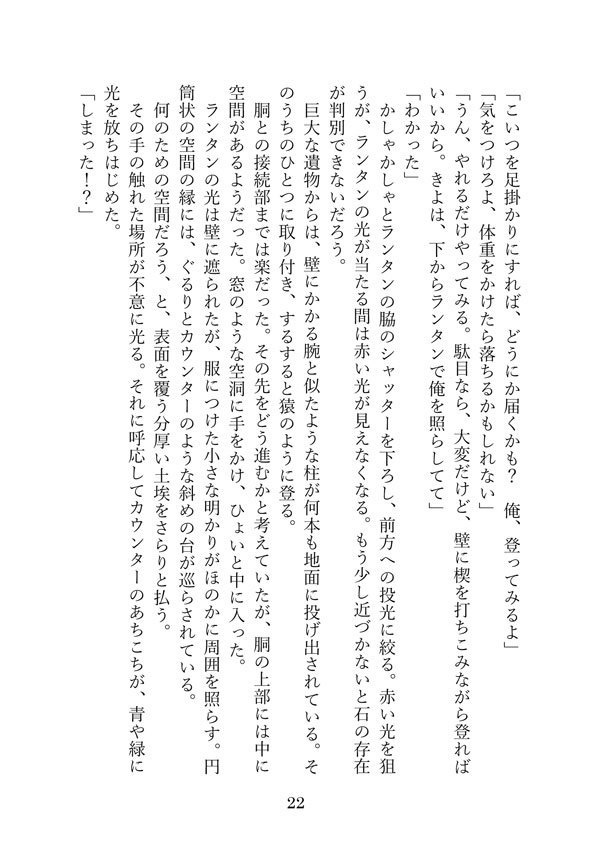 「こいつを足掛かりにすれば、どうにか届くかも？　俺、登ってみるよ」
「気をつけろよ、体重をかけたら落ちるかもしれない」
「うん、やれるだけやってみる。駄目なら、大変だけど、壁に楔を打ちこみながら登れば
いいから。きよは、下からランタンで俺を照らしてて」
「わかった」
　かしゃかしゃとランタンの脇のシャッターを下ろし、前方への投光に絞る。赤い光を狙
うが、ランタンの光が当たる間は赤い光が見えなくなる。もう少し近づかないと石の存在
が判別できないだろう。
　巨大な遺物からは、壁にかかる腕と似たような柱が何本も地面に投げ出されている。そ
のうちのひとつに取り付き、するすると猿のように登る。
　胴との接続部までは楽だった。その先をどう進むかと考えていたが、胴の上部には中に
空間があるようだった。窓のような空洞に手をかけ、ひょいと中に入った。
　ランタンの光は壁に遮られたが、服につけた小さな明かりがほのかに周囲を照らす。円
筒状の空間の縁には、ぐるりとカウンターのような斜めの台が巡らされている。
　何のための空間だろう、と、表面を覆う分厚い土埃をさらりと払う。
　その手の触れた場所が不意に光る。それに呼応してカウンターのあちこちが、青や緑に
光を放ちはじめた。
「しまった！？」
22